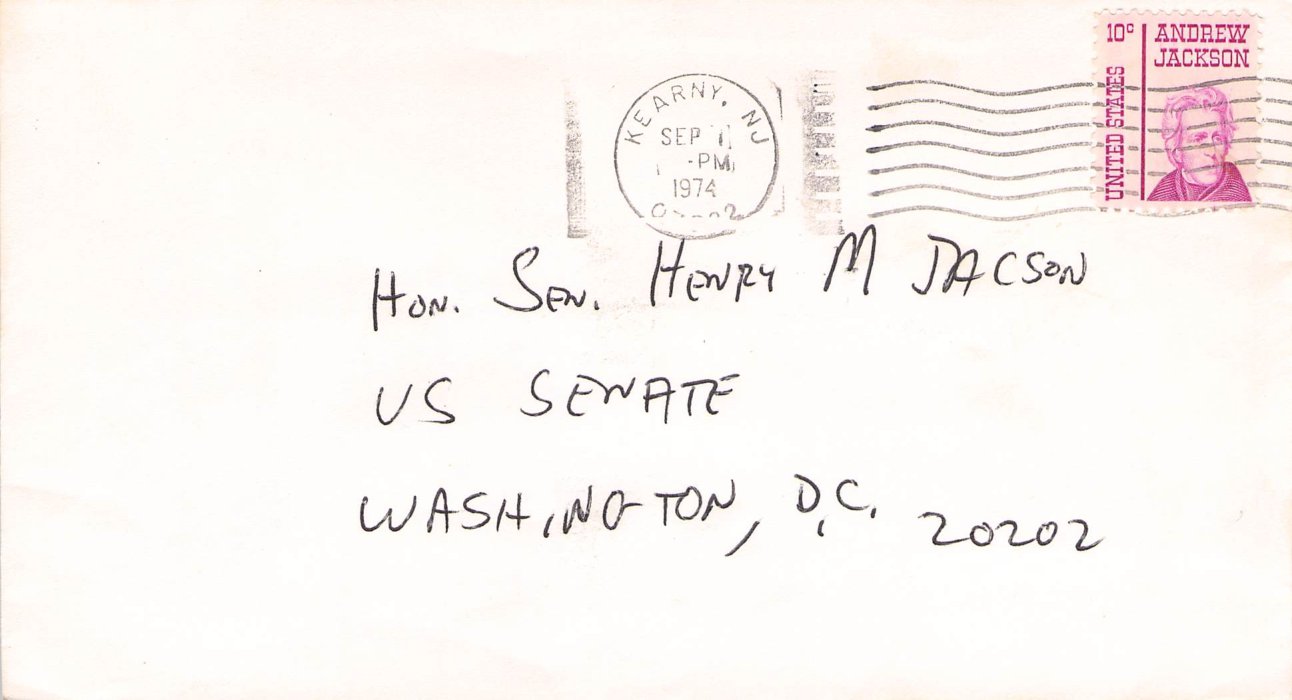 10c ANDREW JACKSON
UNITED STATES
KEARNY, NJ
SEP
PM
1974
HON. SEN. HENRY M JACSON
US SENATE
WASHINGTON, D.C. 20202